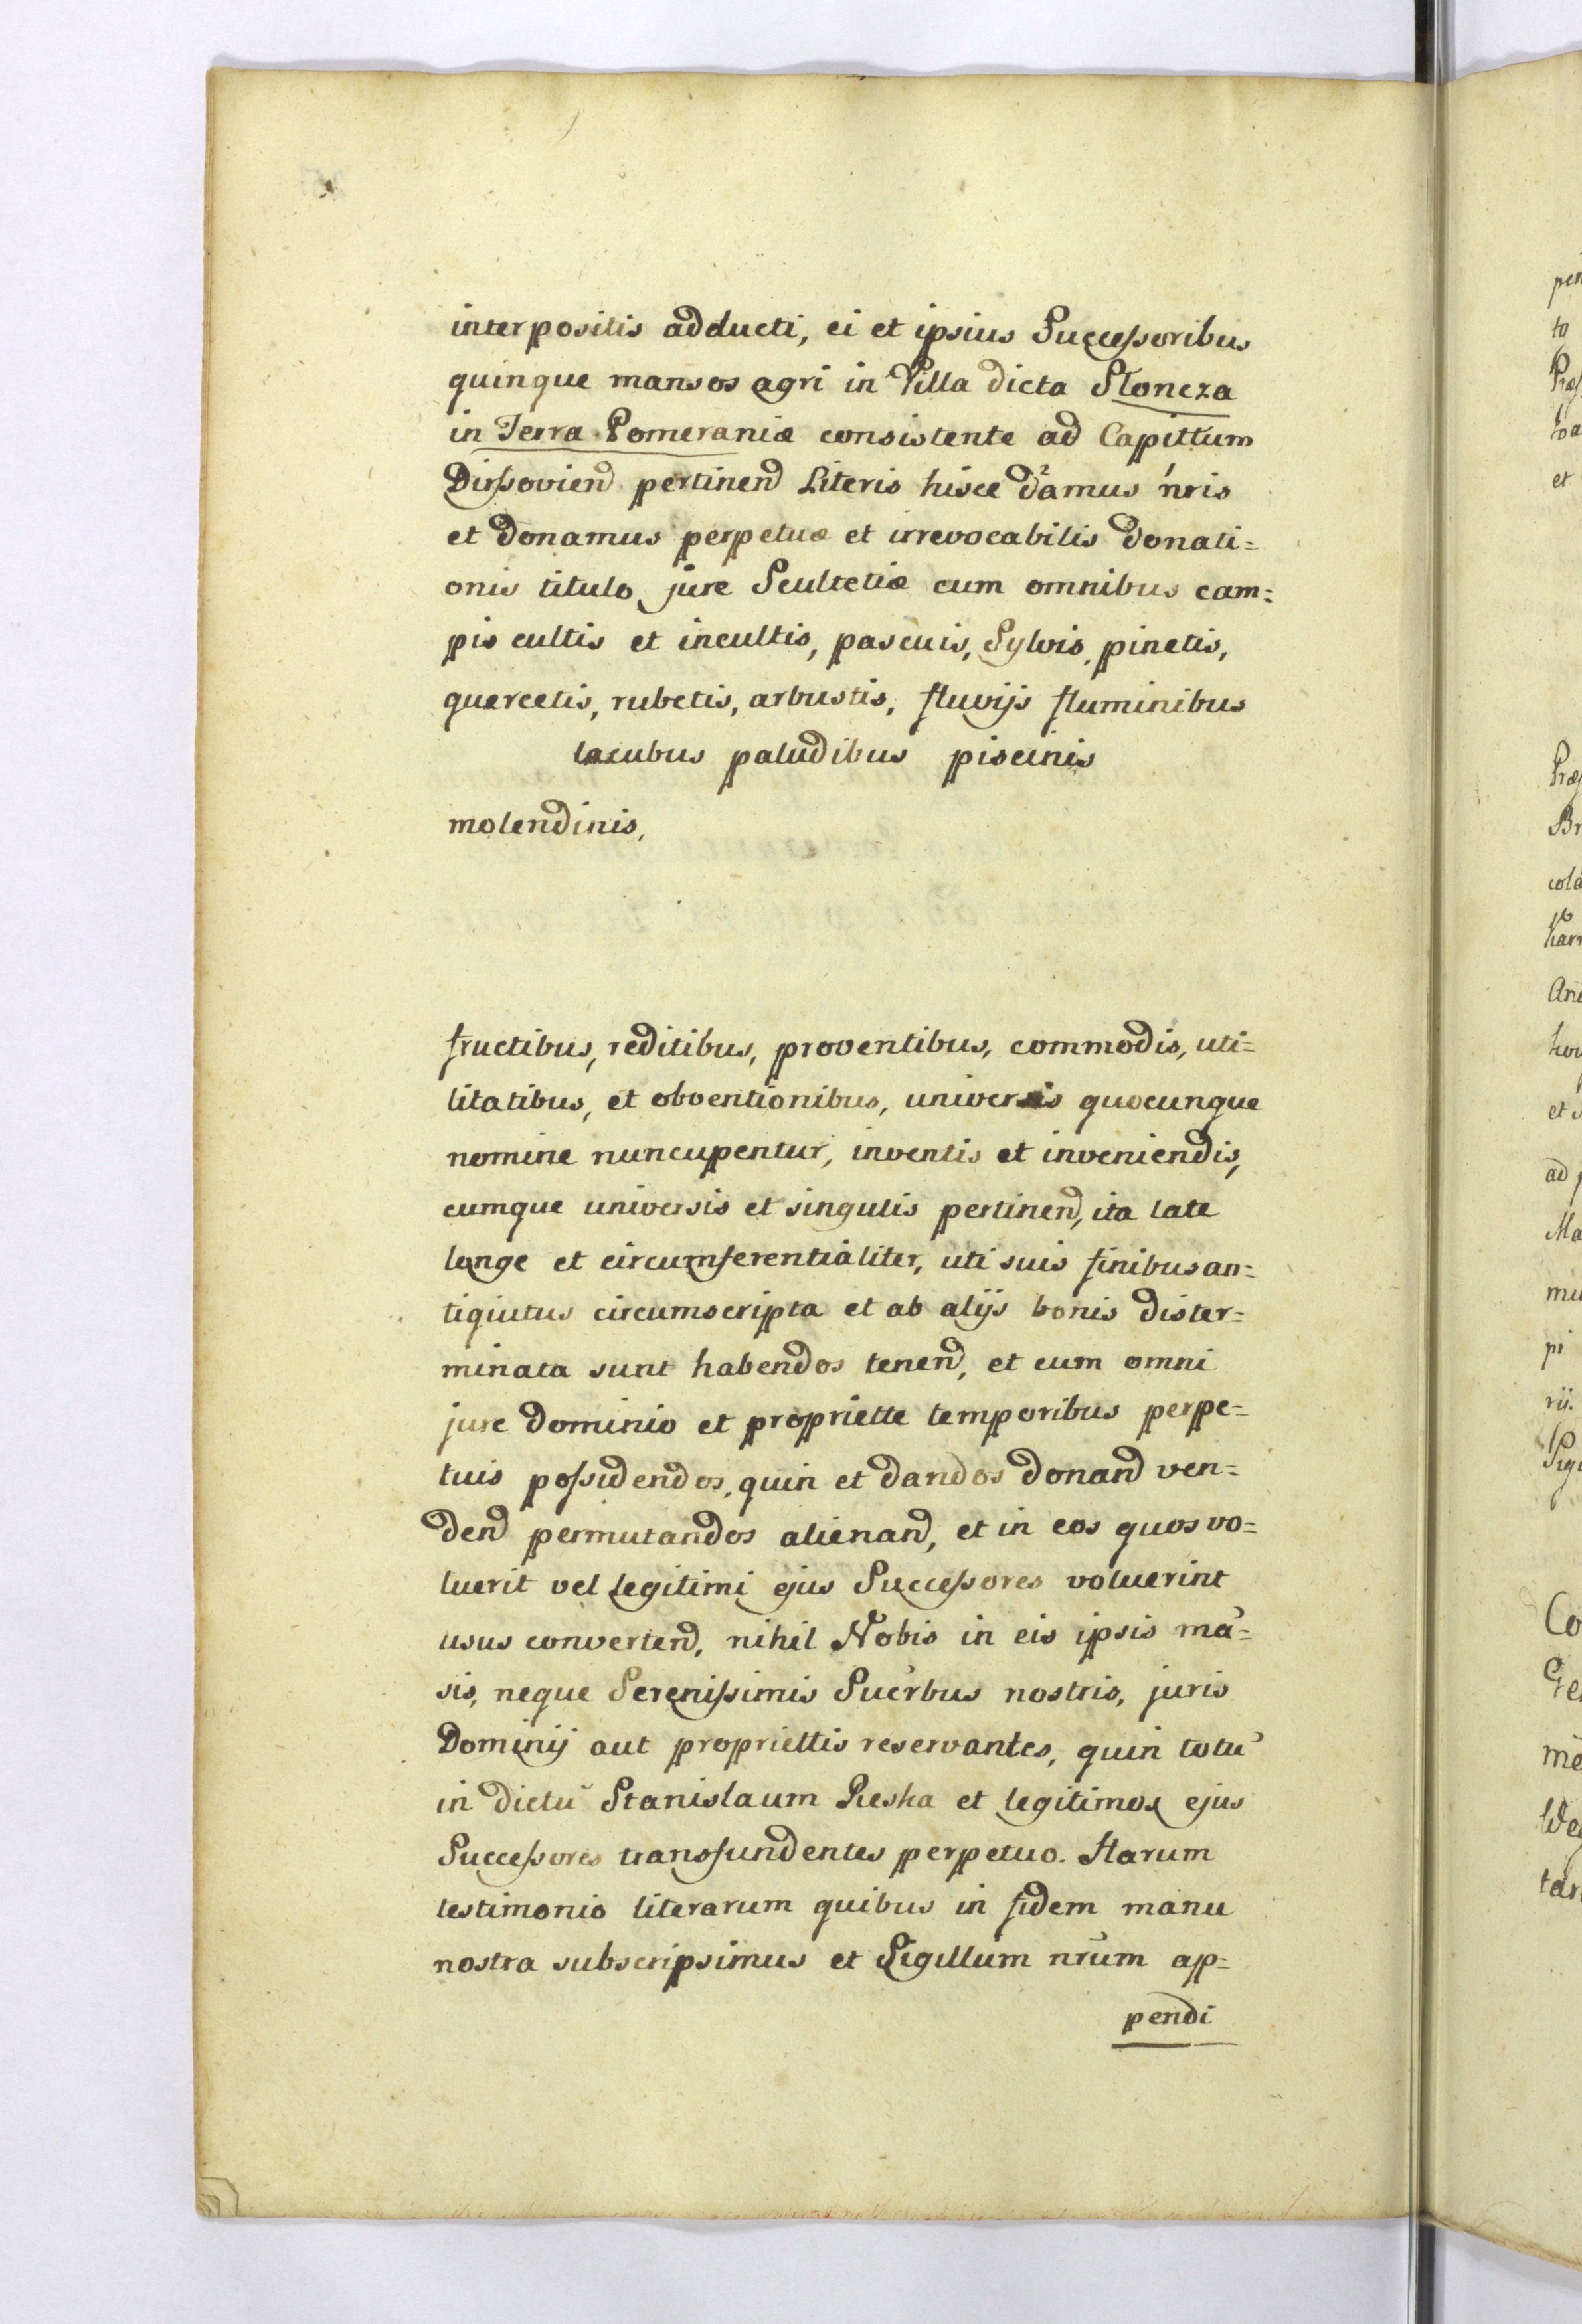 interpositis adducti, ei et ipsius Successoribus
quinque mansos agri in Villa dicta Stoncza
in Terra Pomeraniæ consistente ad Capittum
Dirsoviend pertinend Literis hisce damus nris
et donamus perpetuæ et irrevocabilis donati=
onis titulo, jure Scultetiæ cum omnibus cam=
pis cultis et incultis, pascuis, Sylvis, pinetis,
quercetis, rubetis, arbustis, fluvijs fluminibus
lacubus paludibus piscinis
molendinis,
fructibus, reditibus, proventibus, commodis, uti=
litatibus, et obventionibus, universis quocunque
nomine nuncupentur, inventis et inveniendis,
cumque universis et singulis pertinend, ita late
longe et circumferentialiter, uti suis finibus an=
tiqiutus circumscripta et ab alijs bonis dister=
minata sunt habendos tenend, et cum omni
jure dominio et propriette temporibus perpe=
tuis possidendos, quin et dandos donand ven=
dend permutandos alienand, et in eos quos vo=
luerit vel legitimi ejus Successores voluerint
usus convertend, nihil Nobis in eis ipsis mā=
sis, neque Serenissimis Sucrbus nostris, juris
Dominij aut propriettis reservantes, quin totū
in dictū Stanislaum Reska et legitimos ejus
Successores transfundentes perpetuo. Harum
testimonio literarum quibus in fidem manu
nostra subscripsimus et Sigillum nrum ap=
pendi